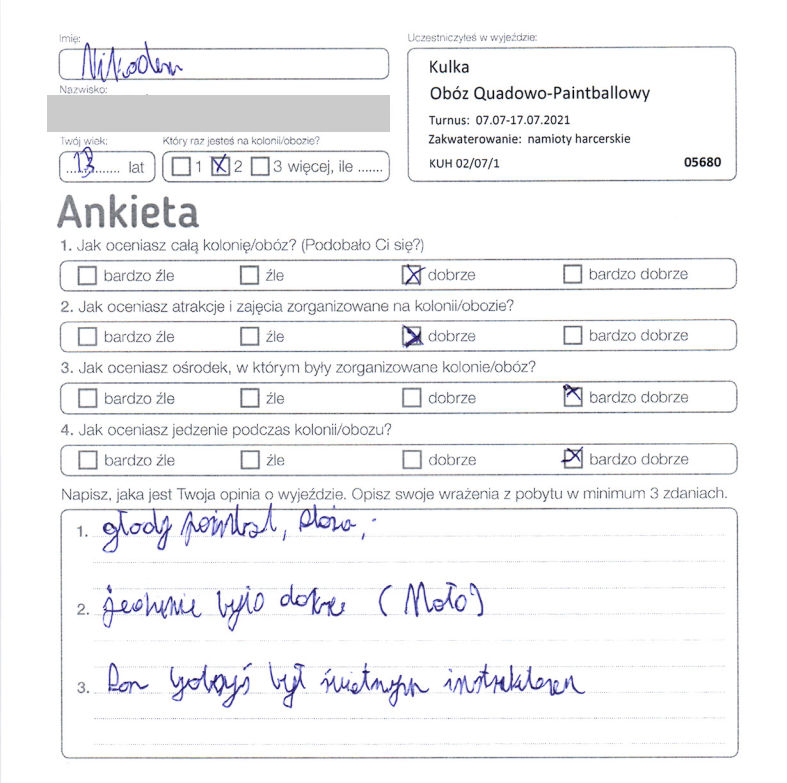 Imię:
Nikodem
Nazwisko:
Twój wiek:
13 lat
Który raz jesteś na kolonii/obozie?
1 2 3 więcej, ile .......
Uczestniczyłeś w wyjeździe:
Kulka
Obóz Quadowo-Paintballowy
Turnus: 07.07-17.07.2021
Zakwaterowanie: namioty harcerskie
KUH 02/07/1 05680
Ankieta
1. Jak oceniasz całą kolonię/obóz? (Podobało Ci się?)
bardzo źle źle dobrze bardzo dobrze
2. Jak oceniasz atrakcje i zajęcia zorganizowane na kolonii/obozie?
bardzo źle źle dobrze bardzo dobrze
3. Jak oceniasz ośrodek, w którym były zorganizowane kolonie/obóz?
bardzo źle źle dobrze bardzo dobrze
4. Jak oceniasz jedzenie podczas kolonii/obozu?
bardzo źle źle dobrze bardzo dobrze
Napisz, jaka jest Twoja opinia o wyjeździe. Opisz swoje wrażenia z pobytu w minimum 3 zdaniach.
1.
2. było dobre (Mało)
3. był świetnym instruktorem